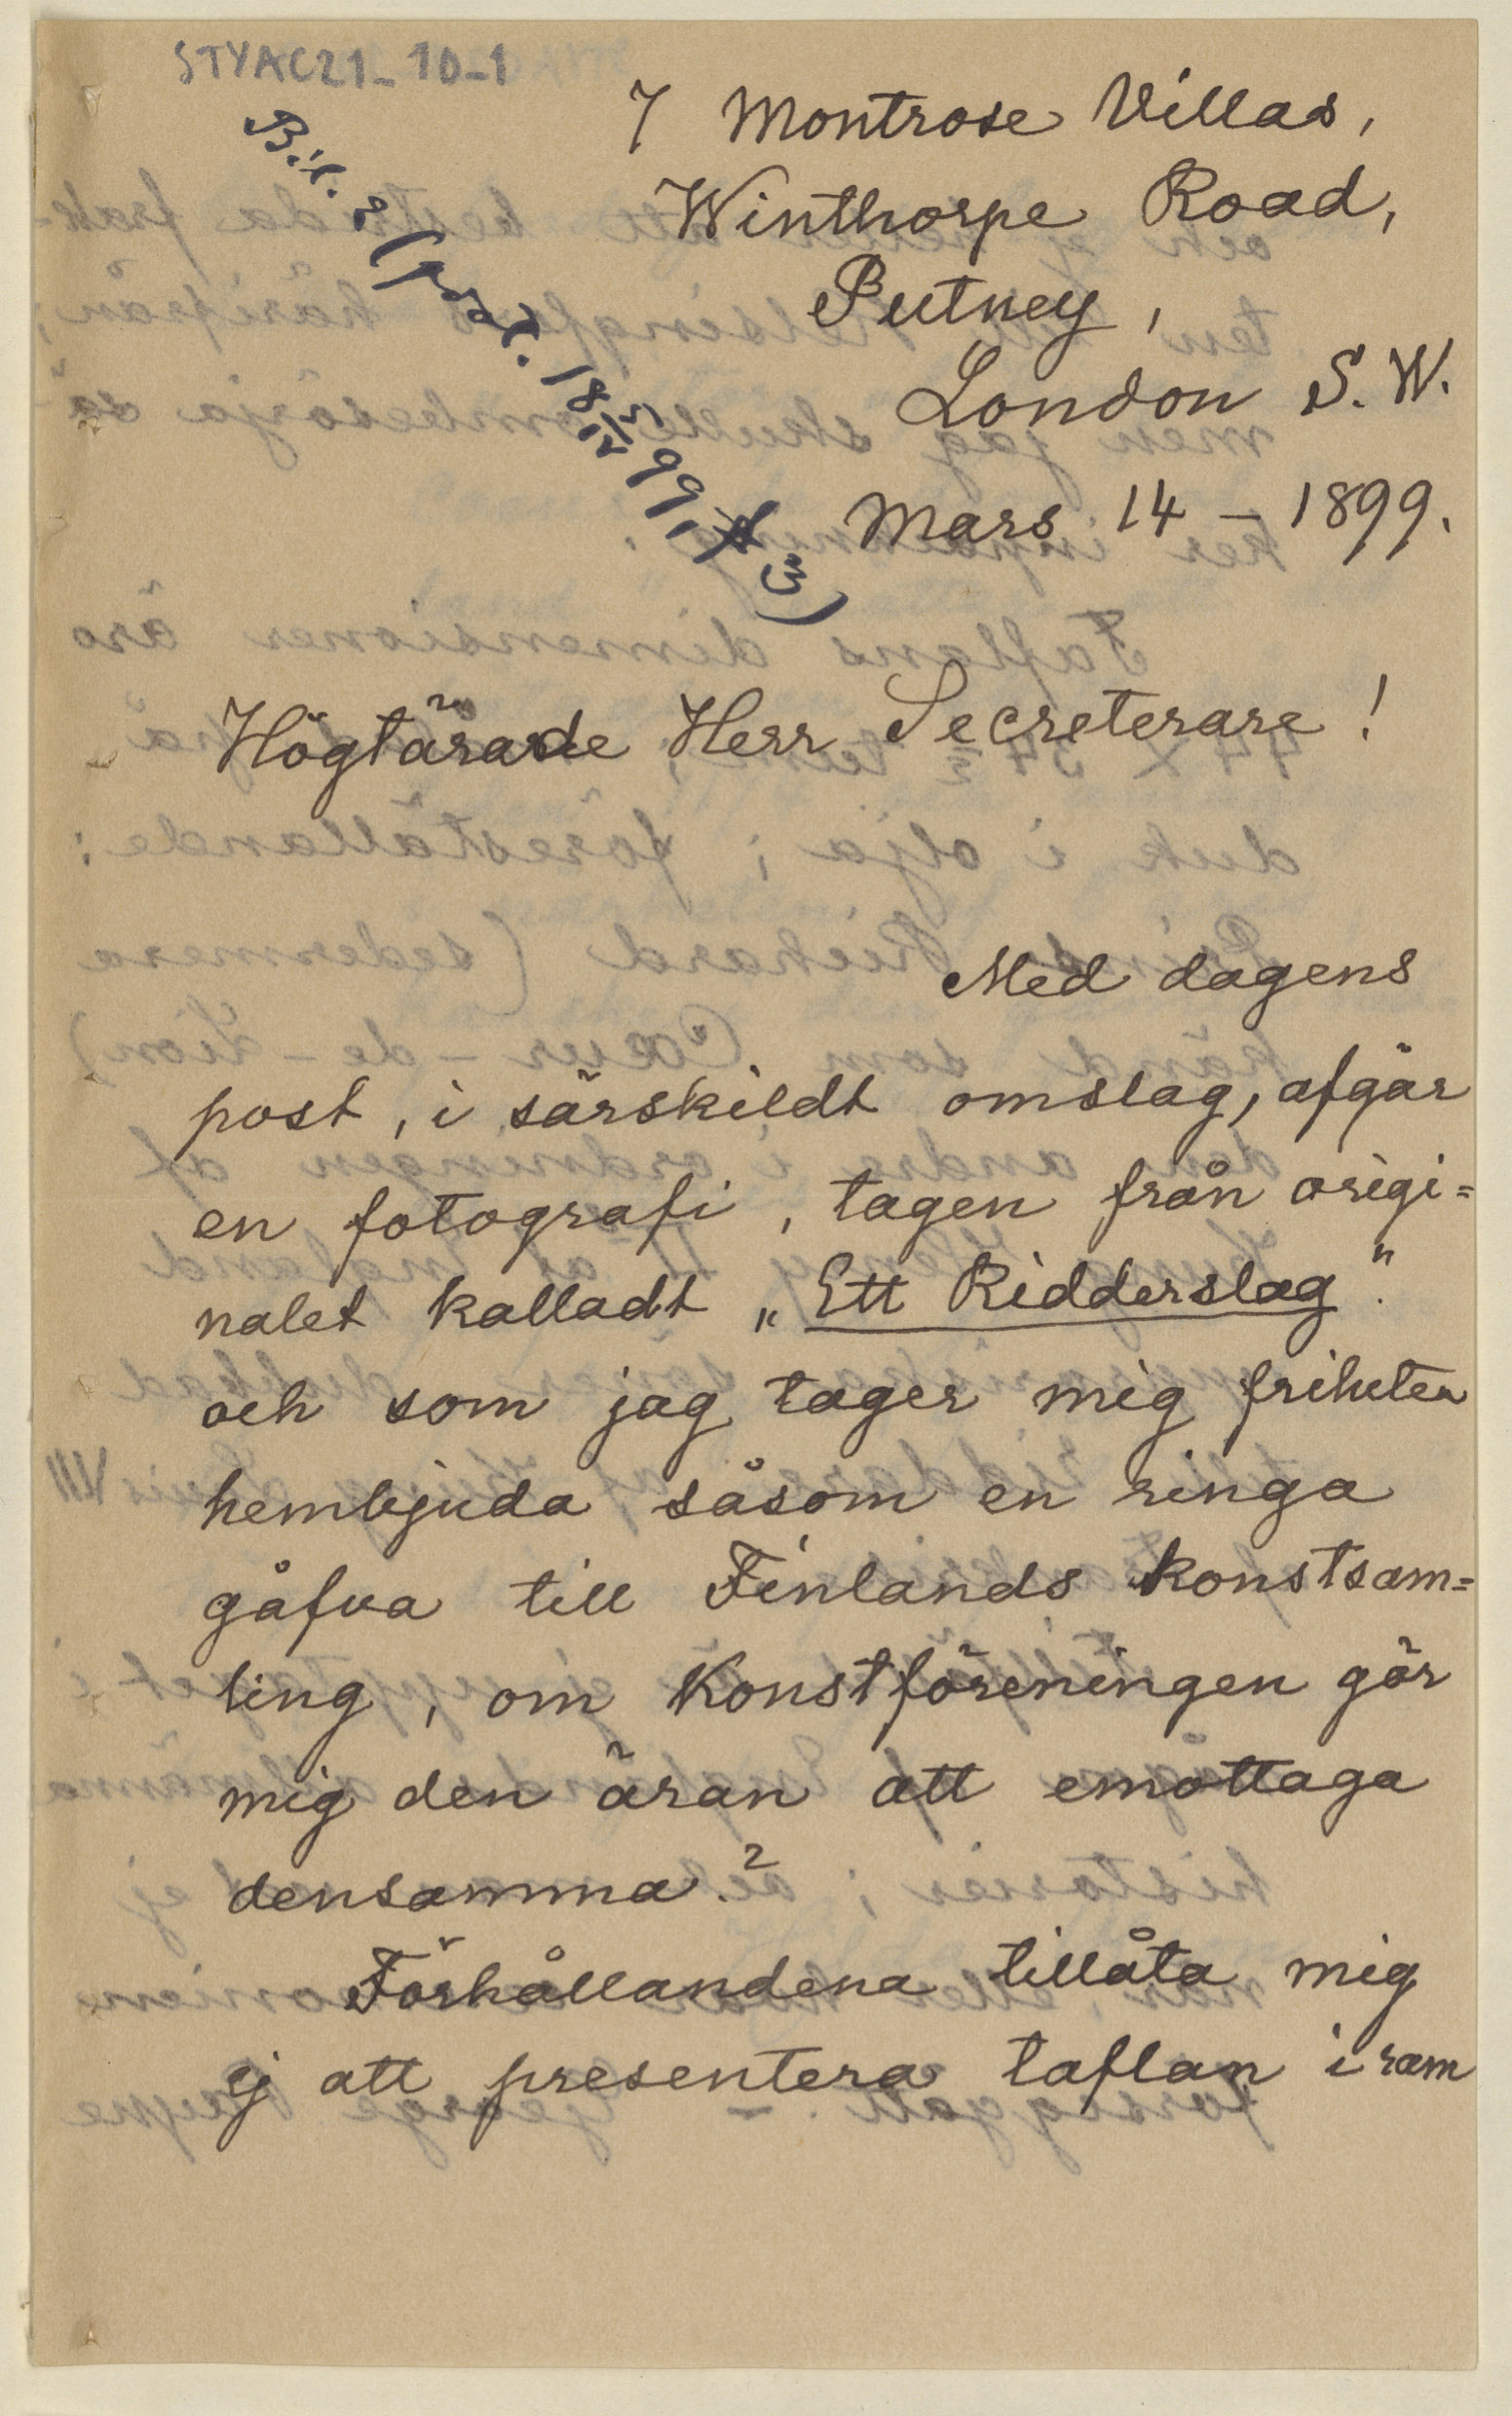 STYAC21_10_1
Bil. 2 (prot. 18 5/12 99, § 3)
7 Montrose Villas,
Winthorpe Road,
Putney,
London S. W.
Mars 14 – 1899.
Högtärade Herr Secreterare!
Med dagens
post, i särskildt omslag, afgår
en fotografi, tagen från origi=
nalet kalladt „Ett Ridderslag".
och som jag tager mig friheten
hembjuda såsom en ringa
gåfva till Finlands Konstsam=
ling, om Konstföreningen gör
mig den äran att emottaga
densamma.?
Förhållandena tillåta mig
ej att presentera taflan i ram